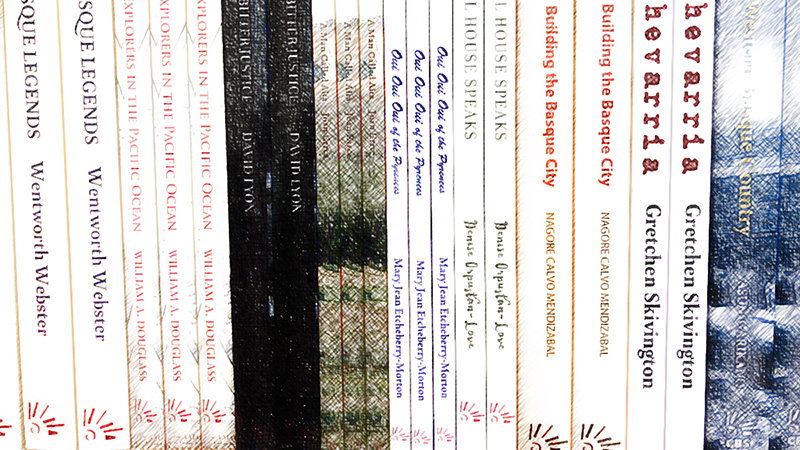 SQUE LEGENDS Wentworth Webster
SQUE LEGENDS Wentworth Webster
EXPLORERS IN THE PACIFIC OCEAN WILLIAM A. DOUGLASS
EXPLORERS IN THE PACIFIC OCEAN WILLIAM A. DOUGLASS
EXPLORERS IN THE PACIFIC OCEAN WILLIAM A. DOUGLASS
JUSTICE DAVID LYON
JUSTICE DAVID LYON
A Man Called
A Man Called
A Man Called
Oui Oui Oui of the Pyrenees Mary Jean Etcheberry-Morton
Oui Oui Oui of the Pyrenees Mary Jean Etcheberry-Morton
Oui Oui Oui of the Pyrenees Mary Jean Etcheberry-Morton
L HOUSE SPEAKS Denise Orpustan-Love
L HOUSE SPEAKS Denise Orpustan-Love
Building the Basque City NAGORE CALVO MENDIZABAL
Building the Basque City NAGORE CALVO MENDIZABAL
hevarria Gretchen Skivington
hevarria Gretchen Skivington
Basque Country
CBS